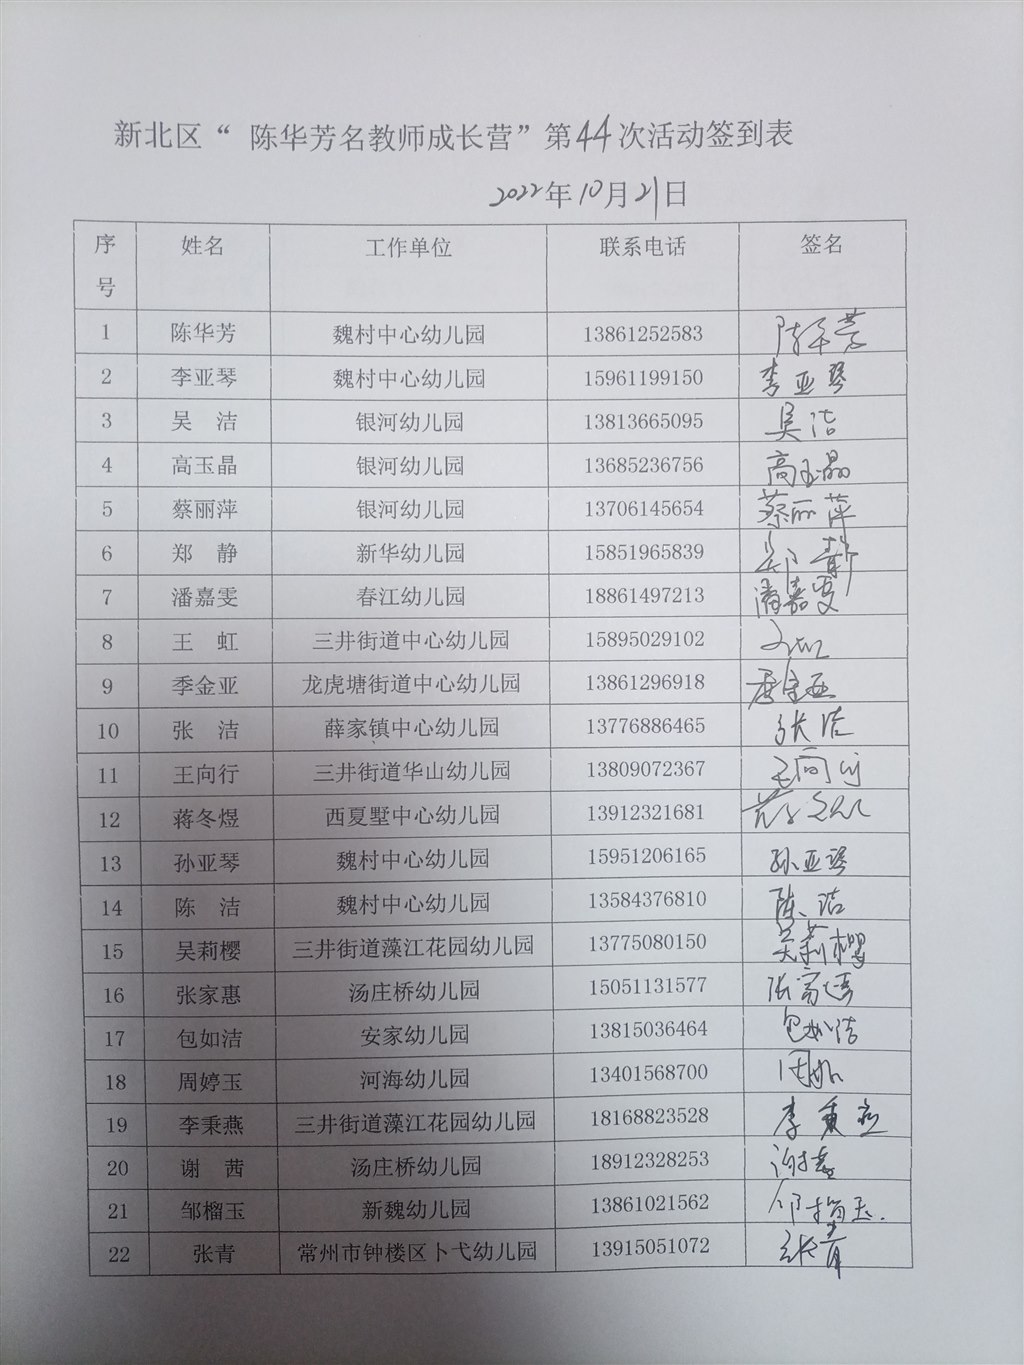 新北区“ 陈华芳名教师成长营”第44次活动签到表
2022年10月21日
序号 姓名 工作单位 联系电话 签名
1 陈华芳 魏村中心幼儿园 13861252583 陈华芳
2 李亚琴 魏村中心幼儿园 15961199150 李亚琴
3 吴 洁 银河幼儿园 13813665095 吴洁
4 高玉晶 银河幼儿园 13685236756 高玉晶
5 蔡丽萍 银河幼儿园 13706145654 蔡丽萍
6 郑 静 新华幼儿园 15851965839 郑静
7 潘嘉雯 春江幼儿园 18861497213 潘嘉雯
8 王 虹 三井街道中心幼儿园 15895029102 王虹
9 季金亚 龙虎塘街道中心幼儿园 13861296918 季金亚
10 张 洁 薛家镇中心幼儿园 13776886465 张洁
11 王向行 三井街道华山幼儿园 13809072367 王向行
12 蒋冬煜 西夏墅中心幼儿园 13912321681
13 孙亚琴 魏村中心幼儿园 15951206165 孙亚琴
14 陈 洁 魏村中心幼儿园 13584376810 陈洁
15 吴莉樱 三井街道藻江花园幼儿园 13775080150 吴莉樱
16 张家惠 汤庄桥幼儿园 15051131577 张家惠
17 包如洁 安家幼儿园 13815036464 包如洁
18 周婷玉 河海幼儿园 13401568700
19 李秉燕 三井街道藻江花园幼儿园 18168823528 李秉燕
20 谢 茜 汤庄桥幼儿园 18912328253 谢茜
21 邹榴玉 新魏幼儿园 13861021562 邹榴玉.
22 张青 常州市钟楼区卜弋幼儿园 13915051072 张青